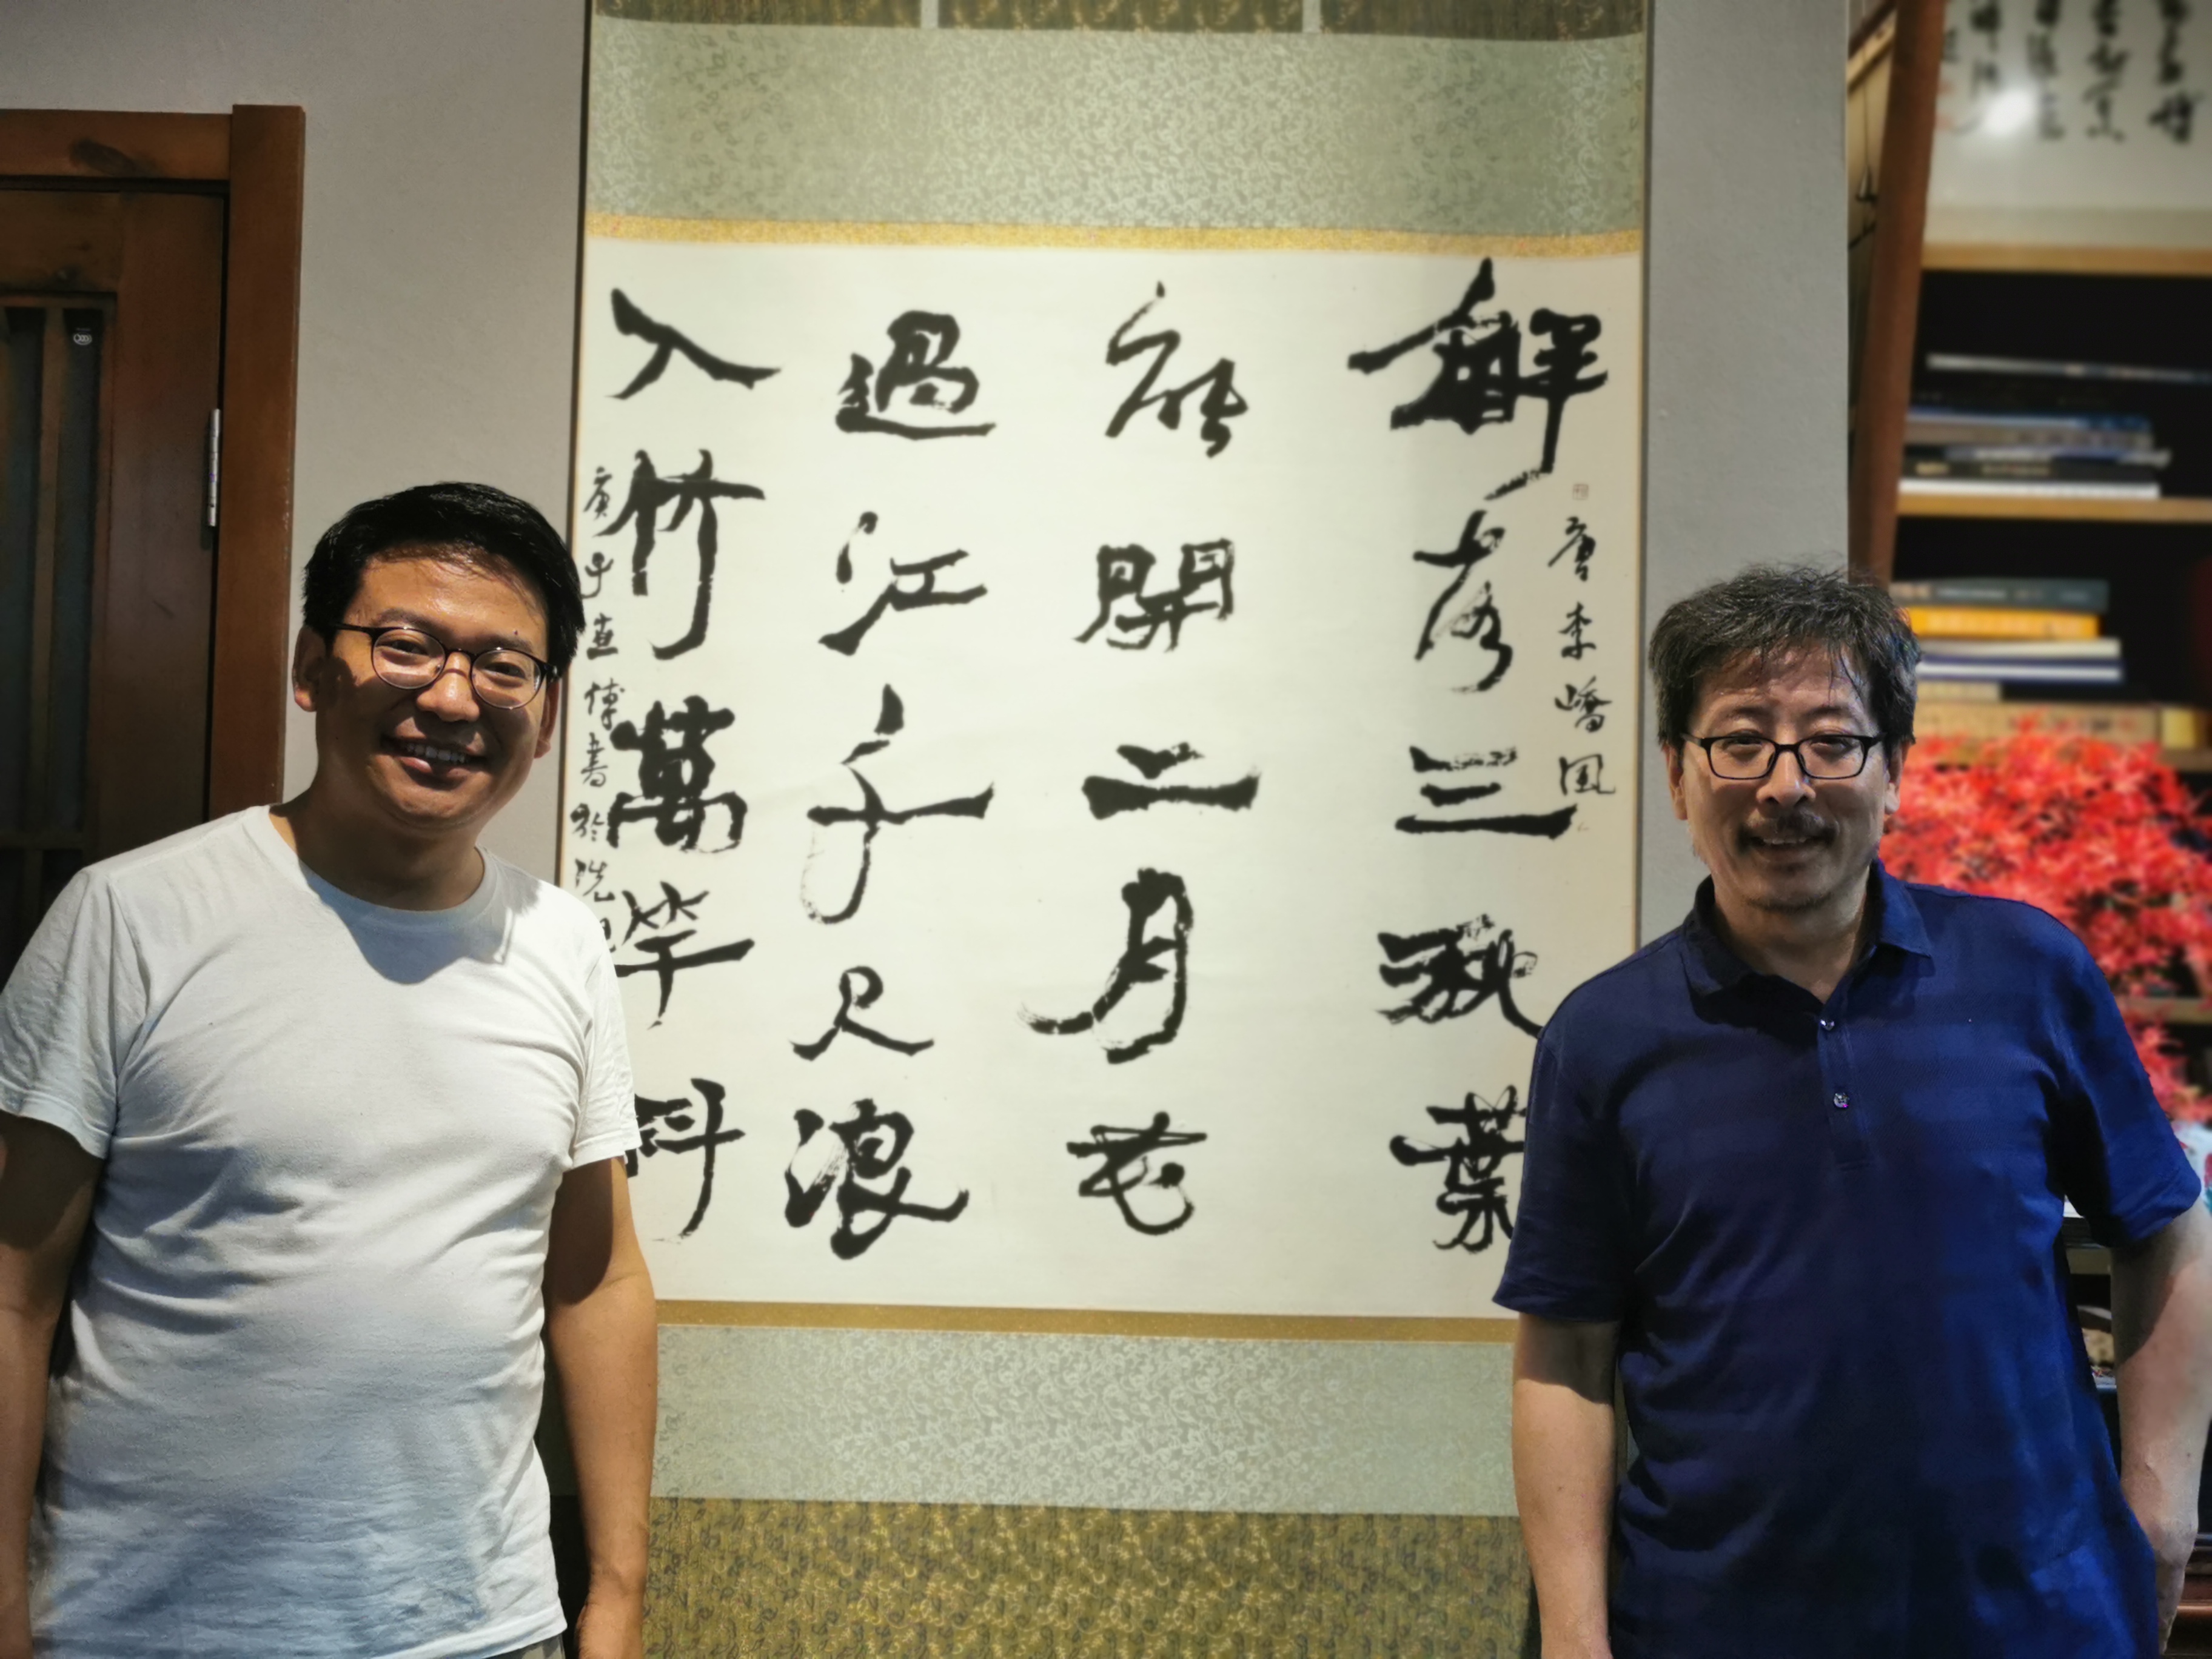 解落三秋葉
能開二月花
過江千尺浪
入竹萬竿斜
唐李嶠風
庚子 傅書於洗